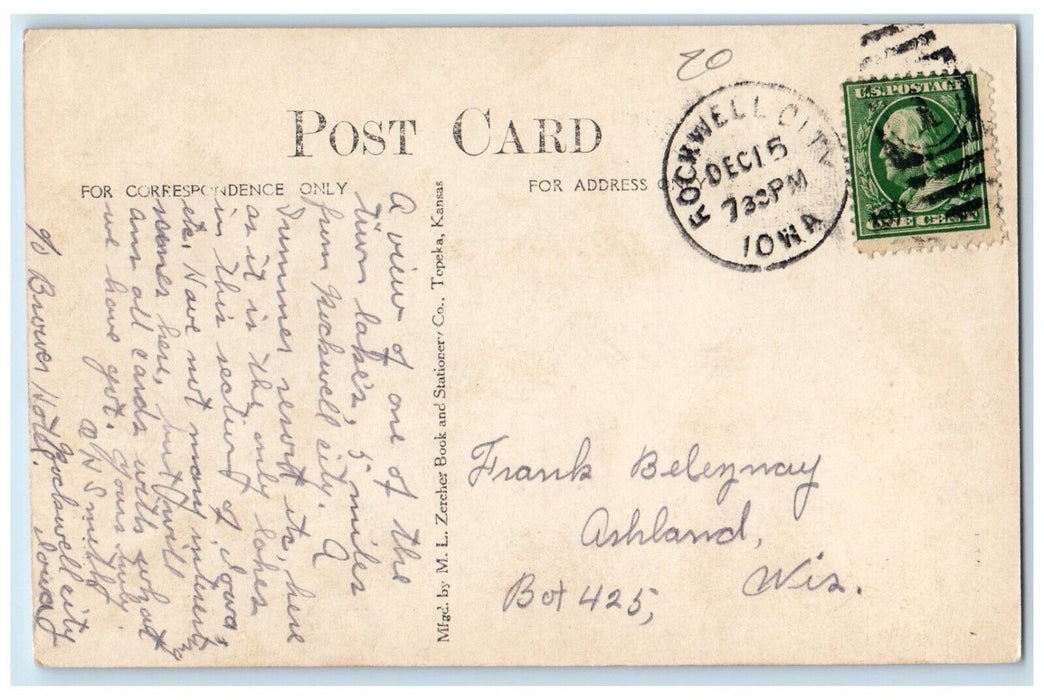 20
POST CARD
FOR CORRESPONDENCE ONLY
FOR ADDRESS ONLY
ROCKWELL CITY
DEC 15
730PM
IOWA
U.S. POSTAGE
ONE CENT
A view of one of the
Twin lakes, 5 miles
from Rockwell city. A
Summer resort its, here
as it is the only lakes
in this section of Iowa,
etc. Have not many interesting
scenes here, but will
ans all cards with what
we have got. Yours truly
Smith
% Brower Hotel.
Rockwell city
Iowa
Mfgd. by M. L. Zercher Book and Stationery Co., Topeka, Kansas
Frank Beleznay
Ashland,
Wis.
Box 425,